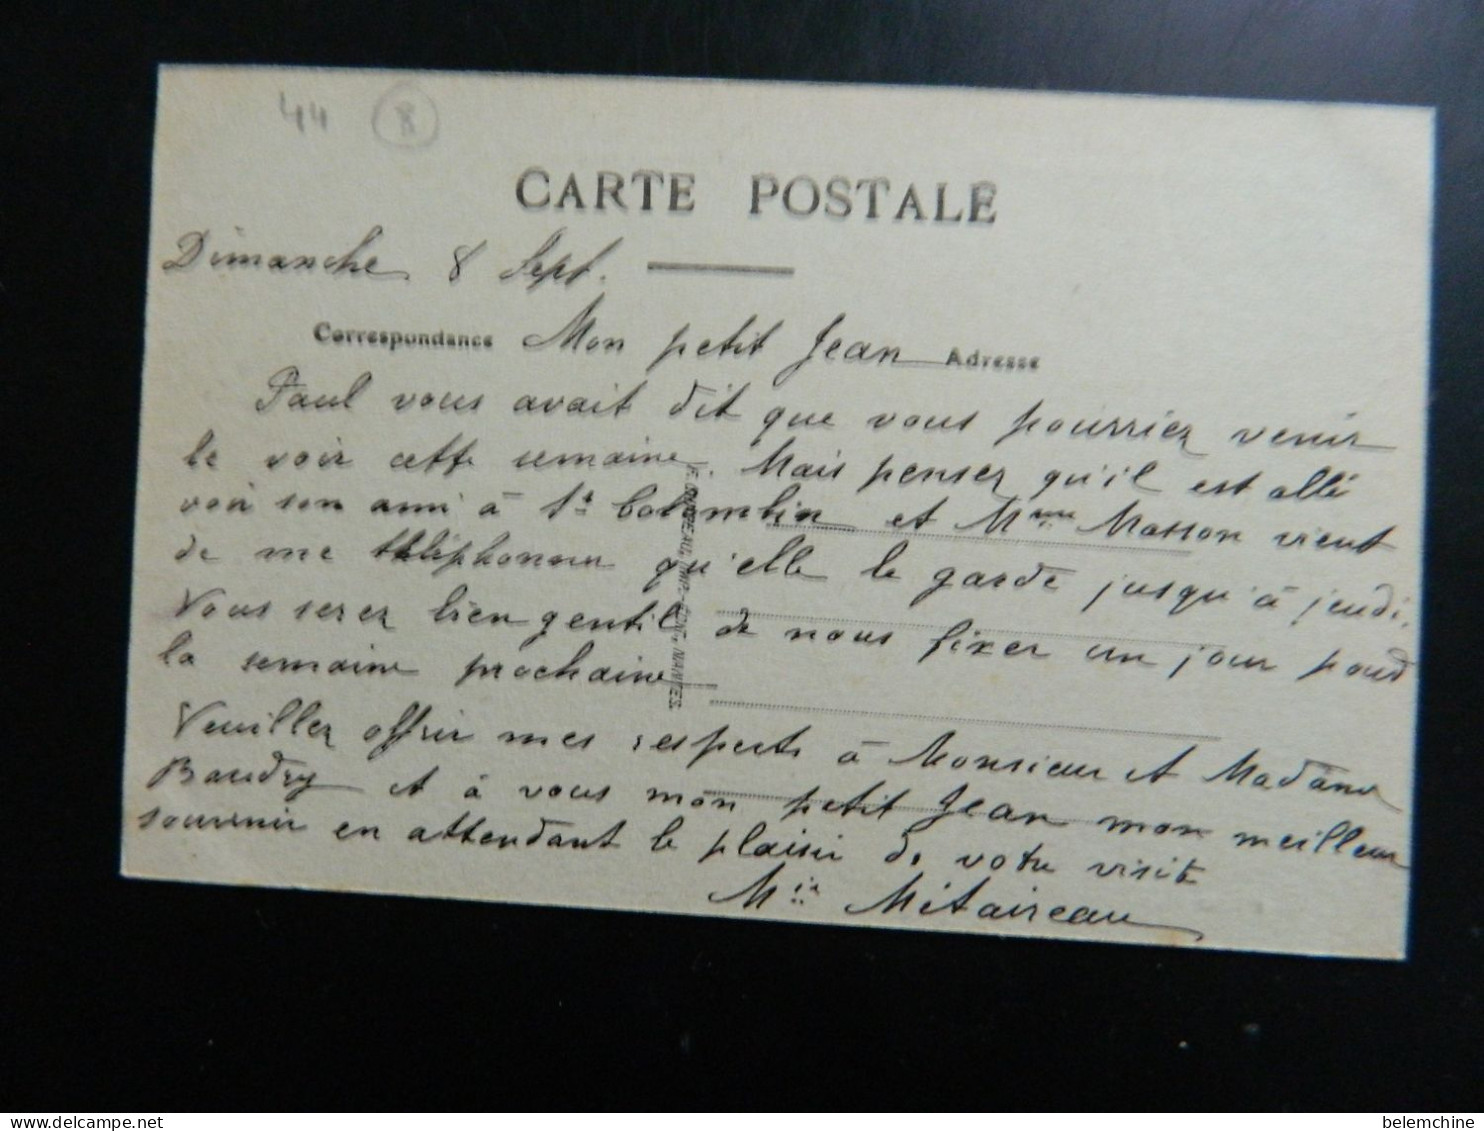 44 8
CARTE POSTALE
Dimanche 8 Sept.
Correspondance Mon petit Jean Adresse
Paul vous avait dit que vous pourriez venir
le voir cette semaine. Mais pensez qu'il est allé
voir son ami à St Colombin et Mme Masson vient
de me téléphoner qu'elle le garde jusqu'à jeudi.
Vous serez bien gentil de nous fixer un jour pour
la semaine prochaine
Veuillez offrir mes respects à Monsieur et Madame
Baudry et à vous mon petit Jean mon meilleur
souvenir en attendant le plaisir de votre visite
Mie Métaireau
NANTES.
belemchine